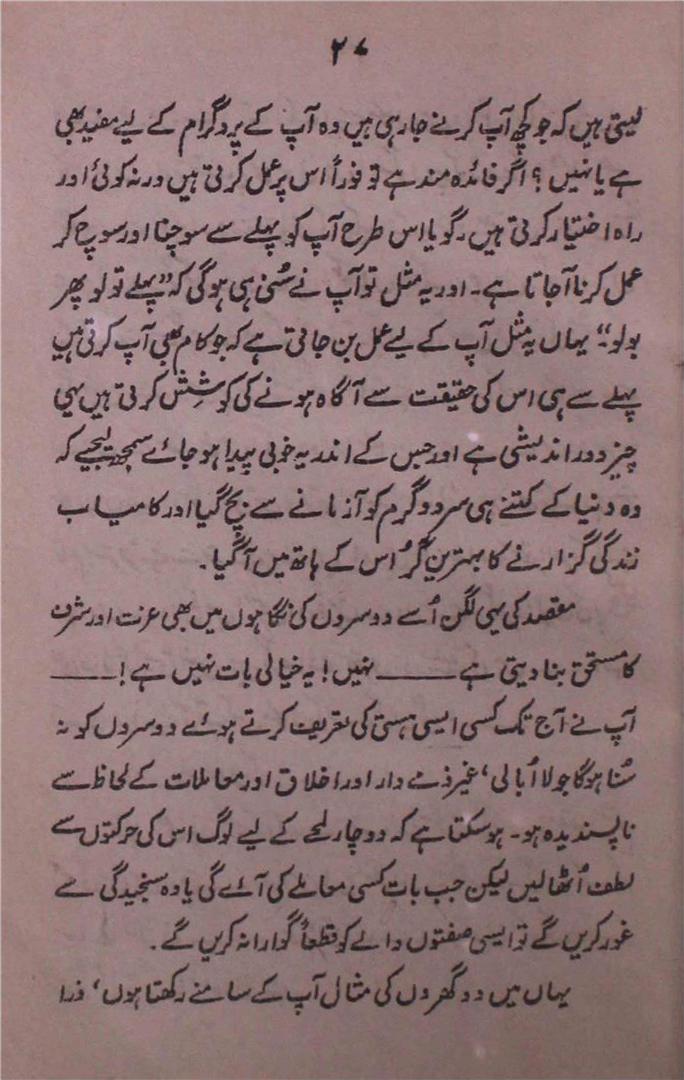 ۲۷
لیتی ہیں کہ جو کچھ آپ کرنے جارہی ہیں وہ آپ کے پروگرام کے لیے مفید بھی
ہے یا نہیں ؟ اگر فائدہ مند ہے تو فوراً اس پر عمل کرتی ہیں ورنہ کوئی اور
راہ اختیار کرتی ہیں۔ گویا اس طرح آپ کو پہلے سے سوچنا اور سوچ کر
عمل کرنا آجاتا ہے۔ اور یہ مثل تو آپ نے سُنی ہی ہوگی کہ "پہلے تولو پھر
بولو" یہاں یہ مثل آپ کے لیے عمل بن جاتی ہے کہ جو کام بھی آپ کرتی ہیں
پہلے سے ہی اس کی حقیقت سے آگاہ ہونے کی کوشِش کرتی ہیں یہی
چیز دور اندیشی ہے اور جس کے اندر یہ خوبی پیدا ہو جائے سمجھ لیجیے کہ
وہ دنیا کے کتنے ہی سرد و گرم کو آزمانے سے بچ گیا اور کامیاب
زندگی گزارنے کا بہترین گُر اُس کے ہاتھ میں آگیا۔
مقصد کی یہی لگن اُسے دوسروں کی نگاہوں میں بھی عزت اور شرف
کا مستحق بنا دیتی ہے ــــــــ نہیں ! یہ خیالی بات نہیں ہے ! ــــــــ
آپ نے آج تک کسی ایسی ہستی کی تعریف کرتے ہوئے دوسروں کو نہ
سُنا ہوگا جو لااُبالی، غیر ذمے دار اور اخلاق اور معاملات کے لحاظ سے
ناپسندیدہ ہو۔ ہوسکتا ہے کہ دو چار لمحے کے لیے لوگ اس کی حرکتوں سے
لطف اُٹھالیں لیکن جب بات کسی معاملے کی آئے گی یا وہ سنجیدگی سے
غور کریں گے تو ایسی صفتوں والے کو قطعاً گوارا نہ کریں گے۔
یہاں میں دو گھروں کی مثال آپ کے سامنے رکھتا ہوں، ذرا